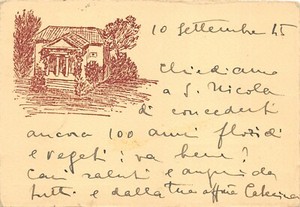 10 Settembre 45
Chiediamo
a S. Nicola
di concederti
ancora 100 anni floridi
e vegeti: va bene?
Cari saluti e auguri da
tutti e dalla tua affma Caterina